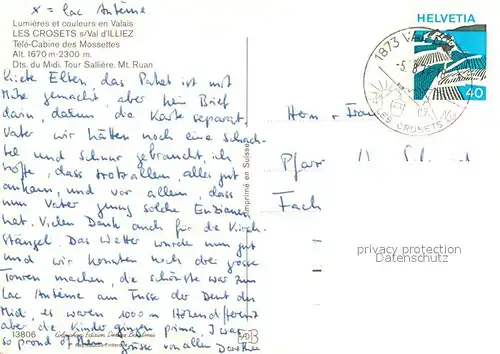 x = Lac Antème
Lumières et couleurs en Valais
LES CROSETS s/Val d'ILLIEZ
Télé-Cabine des Mossettes
Alt. 1670 m-2300 m.
Dts. du Midi. Tour Sallière. Mt. Ruan
HELVETIA
40
1873
-5.8
LES CROSETS
Liebe Eltern, das Paket ist mit
Mühe gemacht, aber kein Brief
darin, darum die Karte separat.
Vater wir hätten noch eine schach-
tel und schnur gebraucht, ich
hoffe, dass trotz allem, alles gut
ankam, und vor allem, dass
nun Vater genug solche Enziane
hat. Vielen Dank auch für die Kirsch
stängel. Das Wetter wurde nun gut
und wir konnten noch drei grosse
Touren machen, die schönste war zum
Lac Antème am Fusse der Dent du
Midi, es waren 1000 m Höhendifferenz
aber die Kinder gingen prima, I was
so proud of them. grüsse von allen Dorothee
Herr + Frau
Pfarr
Fach
Imprimé en Suisse
privacy protection
watermark
13806